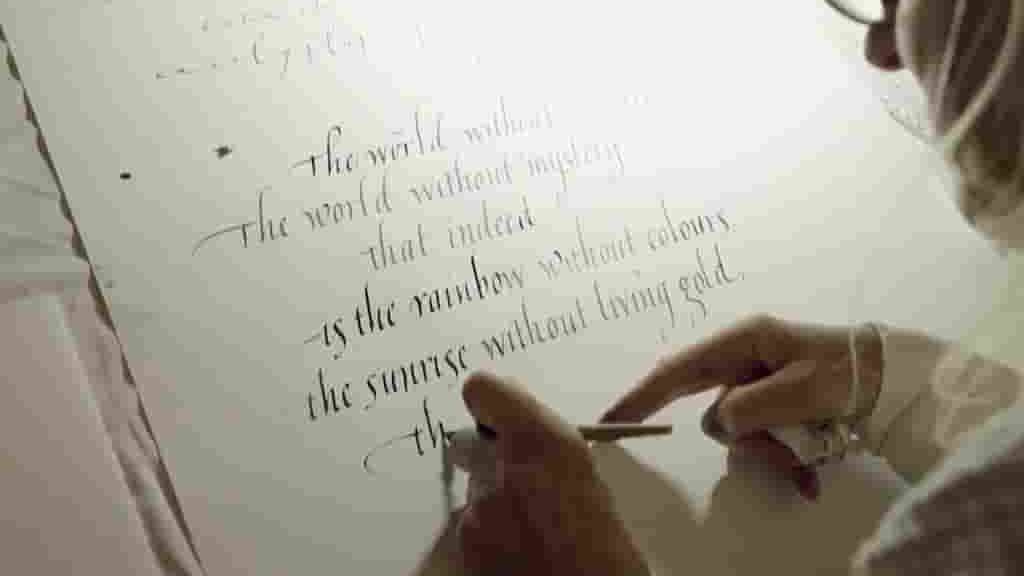 The world without
The world without mystery
that indeed
is the rainbow without colours
the sunrise without living gold.
th